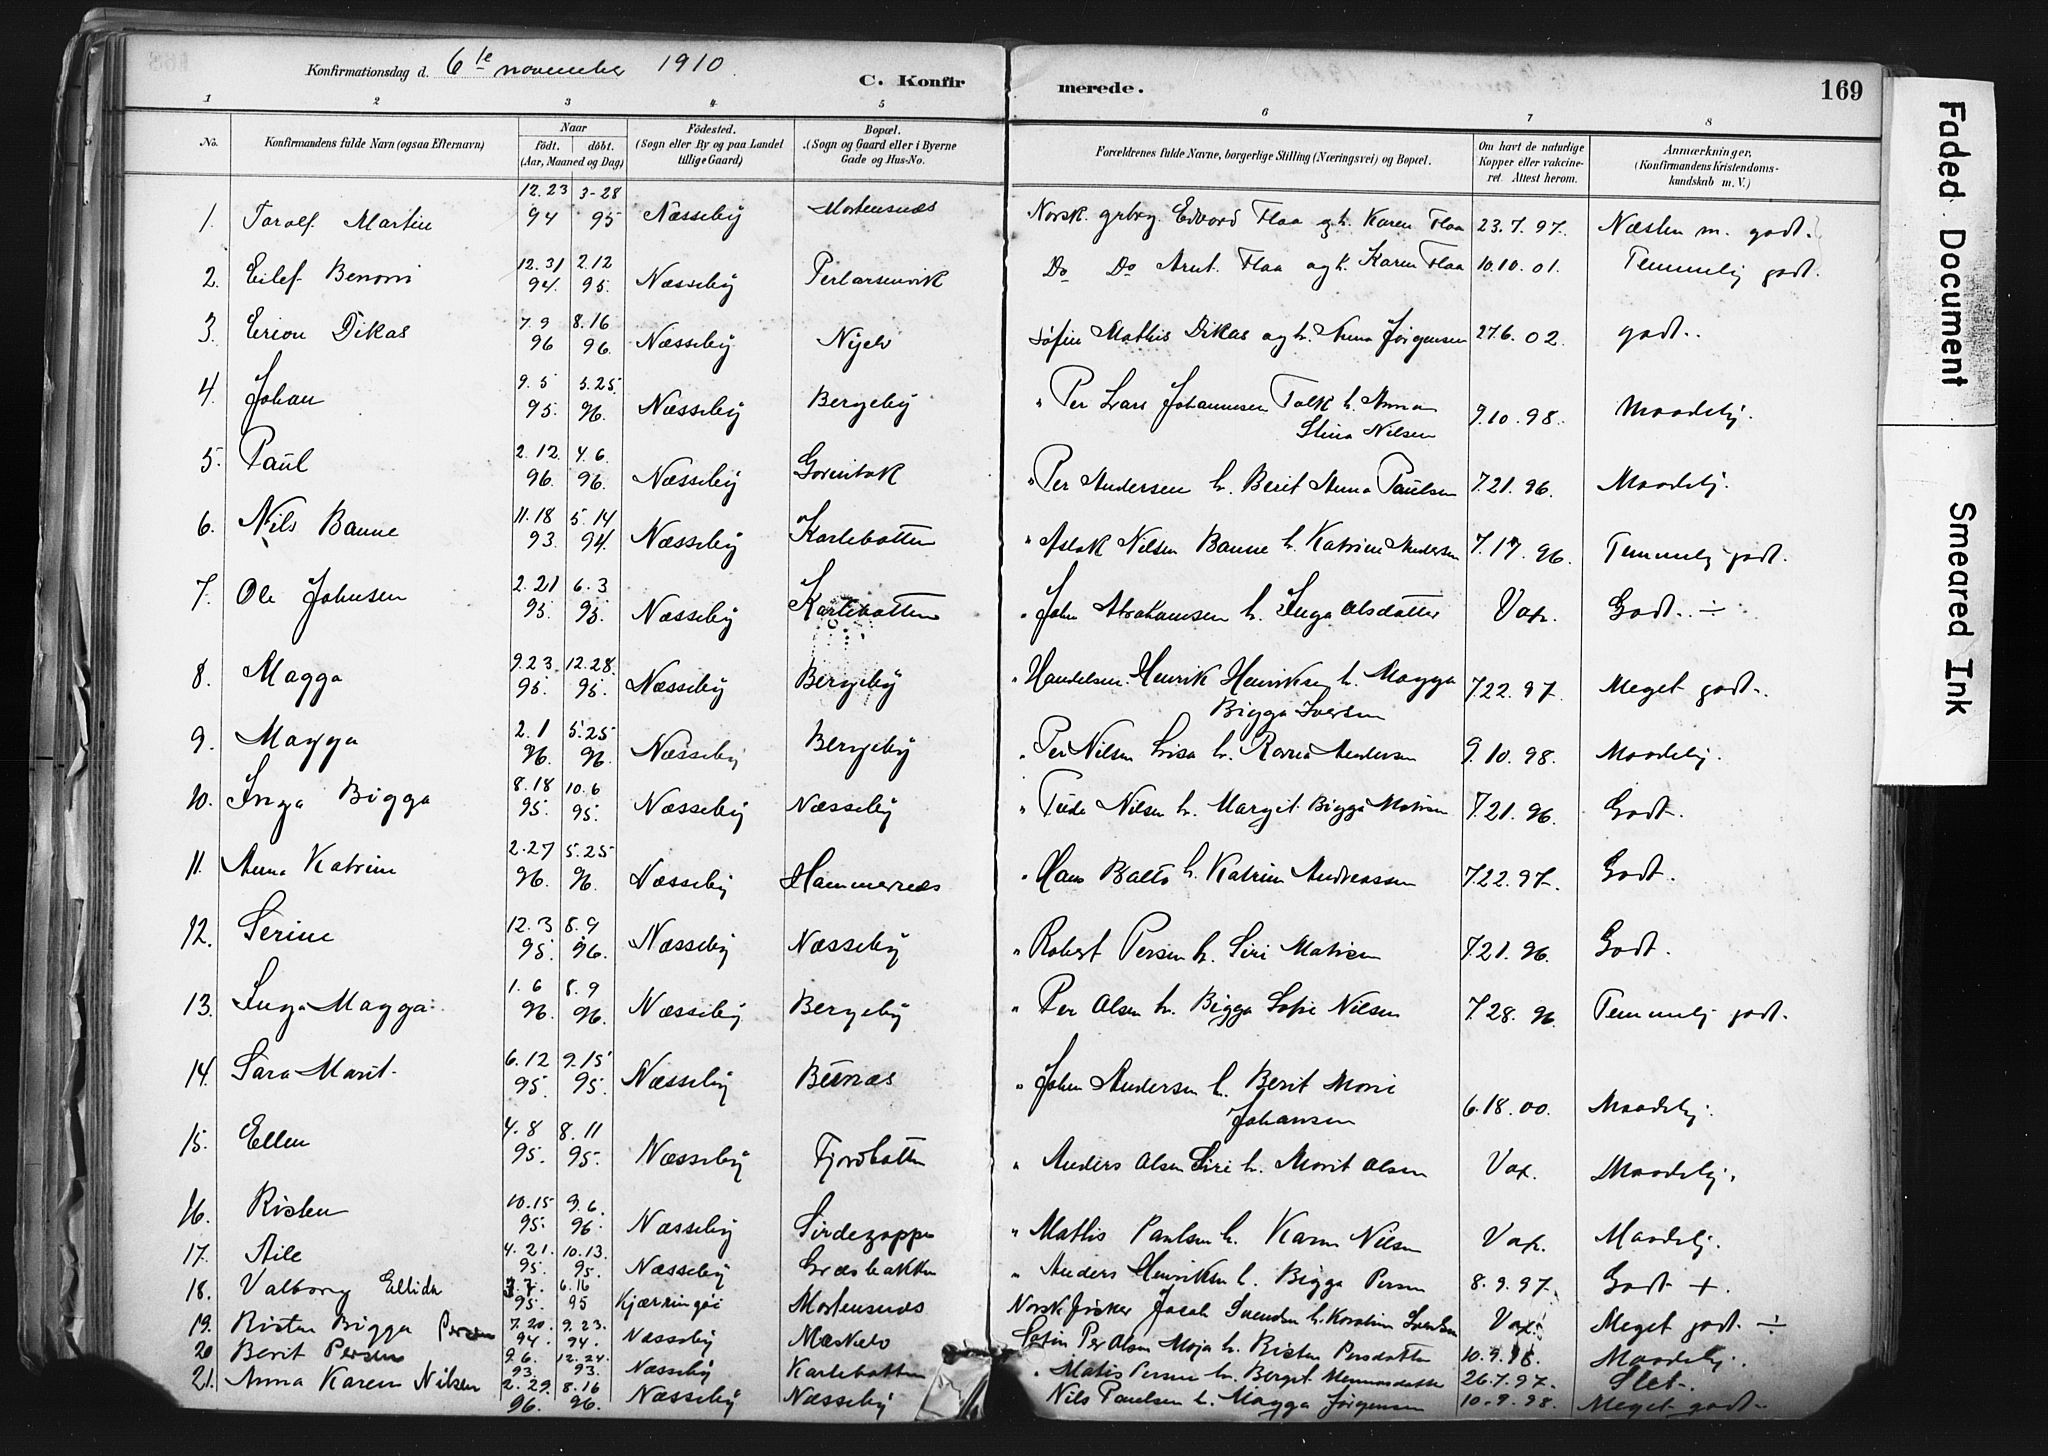 Konfirmationsdag d. 6te november 1910.
C. Konfirmerede.
169
1 2 3 4 5 6 7 8
No. Konfirmandens fulde Navn (ogsaa Efternavn) Naar födt. döbt. (Aar, Maaned og Dag) Födested. (Sogn eller By og paa Landet tillige Gaard) Bopæl. (Sogn og Gaard eller i Byerne Gade og Hus-No. Forældrenes fulde Navne, borgerlige Stilling (Næringsvei) og Bopæl. Om havt de naturlige Kopper eller vakcineret. Attest herom. Anmærkninger. (Konfirmandens Kristendomskundskab m. V.)
1. Toralf Martin 12.23 94 3-28 95 Næsseby Mortensnæs Norsk grbrg. Edvard Flaa og h. Karen Flaa 23.7.97. Næsten m. godt.
2. Eilef Benoni 12.31 94. 2.12 95. Næsseby Perlarsenvik Do Do Arnt. Flaa og h. Karen Flaa 10.10.01. Temmelig godt.
3. Erion Dikas 7.9 96 8.16 96. Næsseby Nyelv Søfin Mathis Dikas og h. Anna Jørgensen 27.6.02. godt.
4. Johan 9.5 95. 5.25. 96. Næsseby Bergeby " Per Lars Johannesen Tolk h. Anna Stina Nilsen 9.10.98. Maadelig.
5. Paul 2.12 96. 4.6. 96. Næsseby " Per Andersen h. Berit Anna Paulsen 7.21.96. Maadelig.
6. Nils Banne 11.18 93. 5.14 94. Næsseby Karlebotten " Aslak Nilsen Banne h. Katrine Andersen 7.17.96. Temmelig godt.
7. Ole Johnsen 2.21 95. 6.3 95. Næsseby Karlebotten " John Abrahamsen h. Inga Olsdatter Vax. Godt. ÷
8. Magga 9.23. 95. 12.28. 95. Næsseby Bergeby " Handelsm. Henrik Henriksen h. Magga Bigga Iversen 7.22.97. Meget godt.
9. Magga 2.1 96. 5.25 96. Næsseby Bergeby " Per Nilsen h. Andersen 9.10.98. Maadelig.
10. Inga Bigga 8.18 95. 10.6 95. Næsseby Næsseby " Nilsen h. Margit Bigga Matisen 7.21.96. Godt.
11. Anna Katrine 2.27 96. 5.25 96. Næsseby Hammernæs " Hans Balto h. Katrine Andreassen 7.22.97. Godt.
12. Serine 12.3 95. 8.9 96. Næsseby Næsseby " Robert Persen h. Siri Matisen 7.21.96. Godt.
13. Inga Magga 1.6 96. 8.9 96. Næsseby Bergeby " Per Olsen h. Bigga Sofie Nilsen 7.28.96. Temmelig godt.
14. Sara Marit 6.12 95. 9.15 95. Næsseby Bunæs " John Andersen h. Berit Marie Johansen 6.18.00. Maadelig.
15. Ellen 4.8 95. 8.11 95. Næsseby Fjordbotten " Anders Olsen Siri h. Marit Olsen Vax. Maadelig.
16. Risten 10.15 95. 9.6. 96. Næsseby " Mathis Paulsen h. Karen Nilsen Vax. Maadelig.
17. Aile 4.21. 95. 10.13. 95. Næsseby Græsbakken " Anders Henriksen h. Bigga Persen 8.9.97. Godt +
18. Valborg Ellida 3.7. 95. 6.16 95 Kjærringøi Mortensnæs Norsk fisker Jacob Svendsen h. Karoline Svendsen Vax. Meget godt ÷
19. Risten Bigga Persen 7.20. 94. 9.23. 94. Næsseby Maskelv Søfin Per Olsen Maja h. Risten Persdatter 10.9.98. Maadelig.
20 Berit Persen 9.6. 93. 12.24. 93. Næsseby Karlebotten " Matis Persen h. Berget 26.7.97. Slet.
21. Anna Karen Nilsen 2.29. 96. 8.16 96. Næsseby Næsseby Nils Paulsen h. Magga Jørgensen 10.9.98. Meget godt.
Faded Document
Smeared Ink